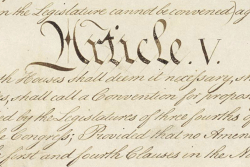 in the Legislature cannot be convened) ag
Article. V.
th Houses shall deem it necessary, s
s, shall call a Convention for propos
ed by the Legislatures of three fourths of
e Congress; Provided that no Amen
first and fourth Clauses in the